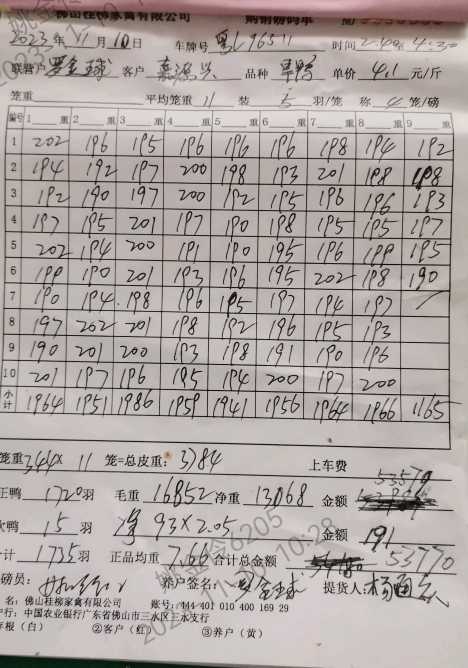 佛山桂柳家禽有限公司 购销磅码单
2023年11月10日 车牌号 粤L96511 时间2:40至4:30
联营户 罗金球 客户 品种 旱鸭 单价 4.1 元/斤
笼重: 平均笼重 11 装 5 羽/笼 称 4 笼/磅
编号 1 重 2 重 3 重 4 重 5 重 6 重 7 重 8 重 9 重
1 202 196 195 196 196 196 198 194 192
2 194 192 197 200 198 193 201 198 198
3 192 190 197 200 192 195 196 196 193
4 197 195 201 197 190 198 195 195 197
5 202 194 200 191 190 195 196 199 195
6 199 190 201 193 196 195 202 198 190
7 190 194 198 196 195 197 194 197 /
8 197 202 201 198 192 196 195 193
9 190 201 200 193 198 191 190 196
10 201 197 196 195 194 200 197 200
小计 1964 1951 1986 1959 1941 1956 1964 1966 1165
笼重 344 × 11 笼=总皮重: 3784 上车费
正鸭 1720 羽 毛重 16852 净重 13068 金额 53579
次鸭 15 羽 净 93×2.05 金额 191
计 1735 羽 正品均重 7.66 合计总金额 53770
磅员: 养户签名: 罗金球 提货人:
名:佛山桂柳家禽有限公司 账号:444 401 010 400 169 29
行:中国农业银行广东省佛山市三水区三水支行
存根(白) ②客户(红) ③养户(黄)